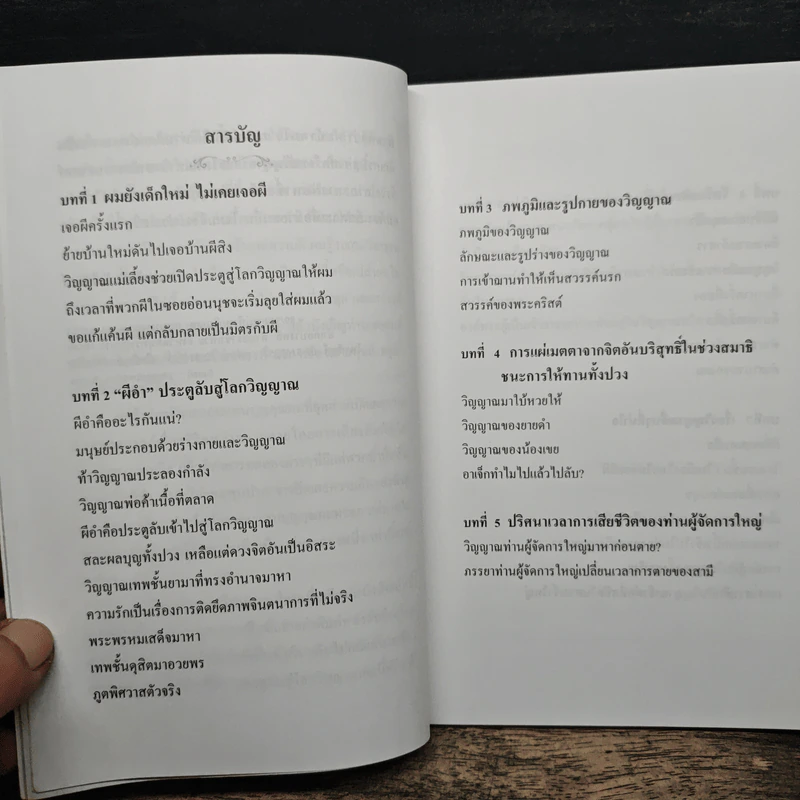 สารบัญ
บทที่ 1 ผมยังเด็กใหม่ ไม่เคยเจอผี
เจอผีครั้งแรก
ย้ายบ้านใหม่ดันไปเจอบ้านผีสิง
วิญญาณแม่เลี้ยงช่วยเปิดประตูสู่โลกวิญญาณให้ผม
ถึงเวลาที่พวกผีในซอยอ่อนนุชจะเริ่มลุยใส่ผมแล้ว
ขอแก้แค้นผี แต่กลับกลายเป็นมิตรกับผี
บทที่ 2 “ผีอำ” ประตูลับสู่โลกวิญญาณ
ผีอำคืออะไรกันแน่?
มนุษย์ประกอบด้วยร่างกายและวิญญาณ
ท้าวิญญาณประลองกำลัง
วิญญาณพ่อค้าเนื้อที่ตลาด
ผีอำคือประตูลับเข้าไปสู่โลกวิญญาณ
สละผลบุญทั้งปวง เหลือแต่ดวงจิตอันเป็นอิสระ
วิญญาณเทพชั้นยามาที่ทรงอำนาจมาหา
ความรักเป็นเรื่องการติดยึดภาพจินตนาการที่ไม่จริง
พระพรหมเสด็จมาหา
เทพชั้นดุสิตมาอวยพร
ภูตพิศวาสตัวจริง
บทที่ 3 ภพภูมิและรูปกายของวิญญาณ
ภพภูมิของวิญญาณ
ลักษณะและรูปร่างของวิญญาณ
การเข้าฌานทำให้เห็นสวรรค์นรก
สวรรค์ของพระคริสต์
บทที่ 4 การแผ่เมตตาจากจิตอันบริสุทธิ์ในช่วงสมาธิ
ชนะการให้ทานทั้งปวง
วิญญาณมาใบ้หวยให้
วิญญาณของยายดำ
วิญญาณของน้องเขย
อาเจ็กทำไมไปแล้วไปลับ?
บทที่ 5 ปริศนาเวลาการเสียชีวิตของท่านผู้จัดการใหญ่
วิญญาณท่านผู้จัดการใหญ่มาหาก่อนตาย?
ภรรยาท่านผู้จัดการใหญ่เปลี่ยนเวลาการตายของสามี